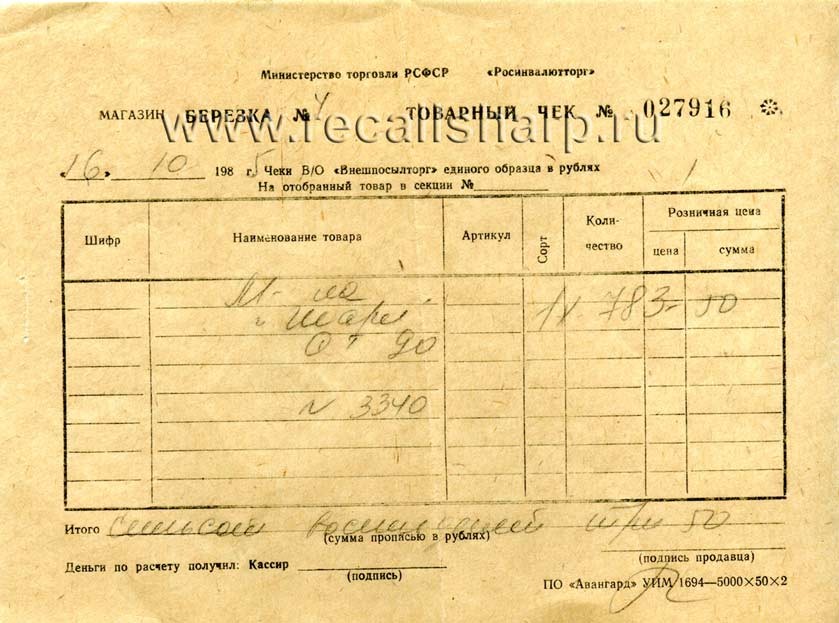 Министерство торговли РСФСР «Росинвалютторг»
МАГАЗИН БЕРЕЗКА № 4 ТОВАРНЫЙ ЧЕК № 027916
www.recallsharp.ru
«16» 10 1985 г. Чеки В/О «Внешпосылторг» единого образца в рублях
На отобранный товар в секции №
Шифр Наименование товара Артикул Сорт Коли-чество Розничная цена
цена сумма
М-ла
"Шарп" 783-50
3340
Итого семьсот восемьдесят три 50
(сумма прописью в рублях)
(подпись продавца)
Деньги по расчету получил: Кассир
(подпись)
ПО «Авангард» УИМ 1694—5000×50×2